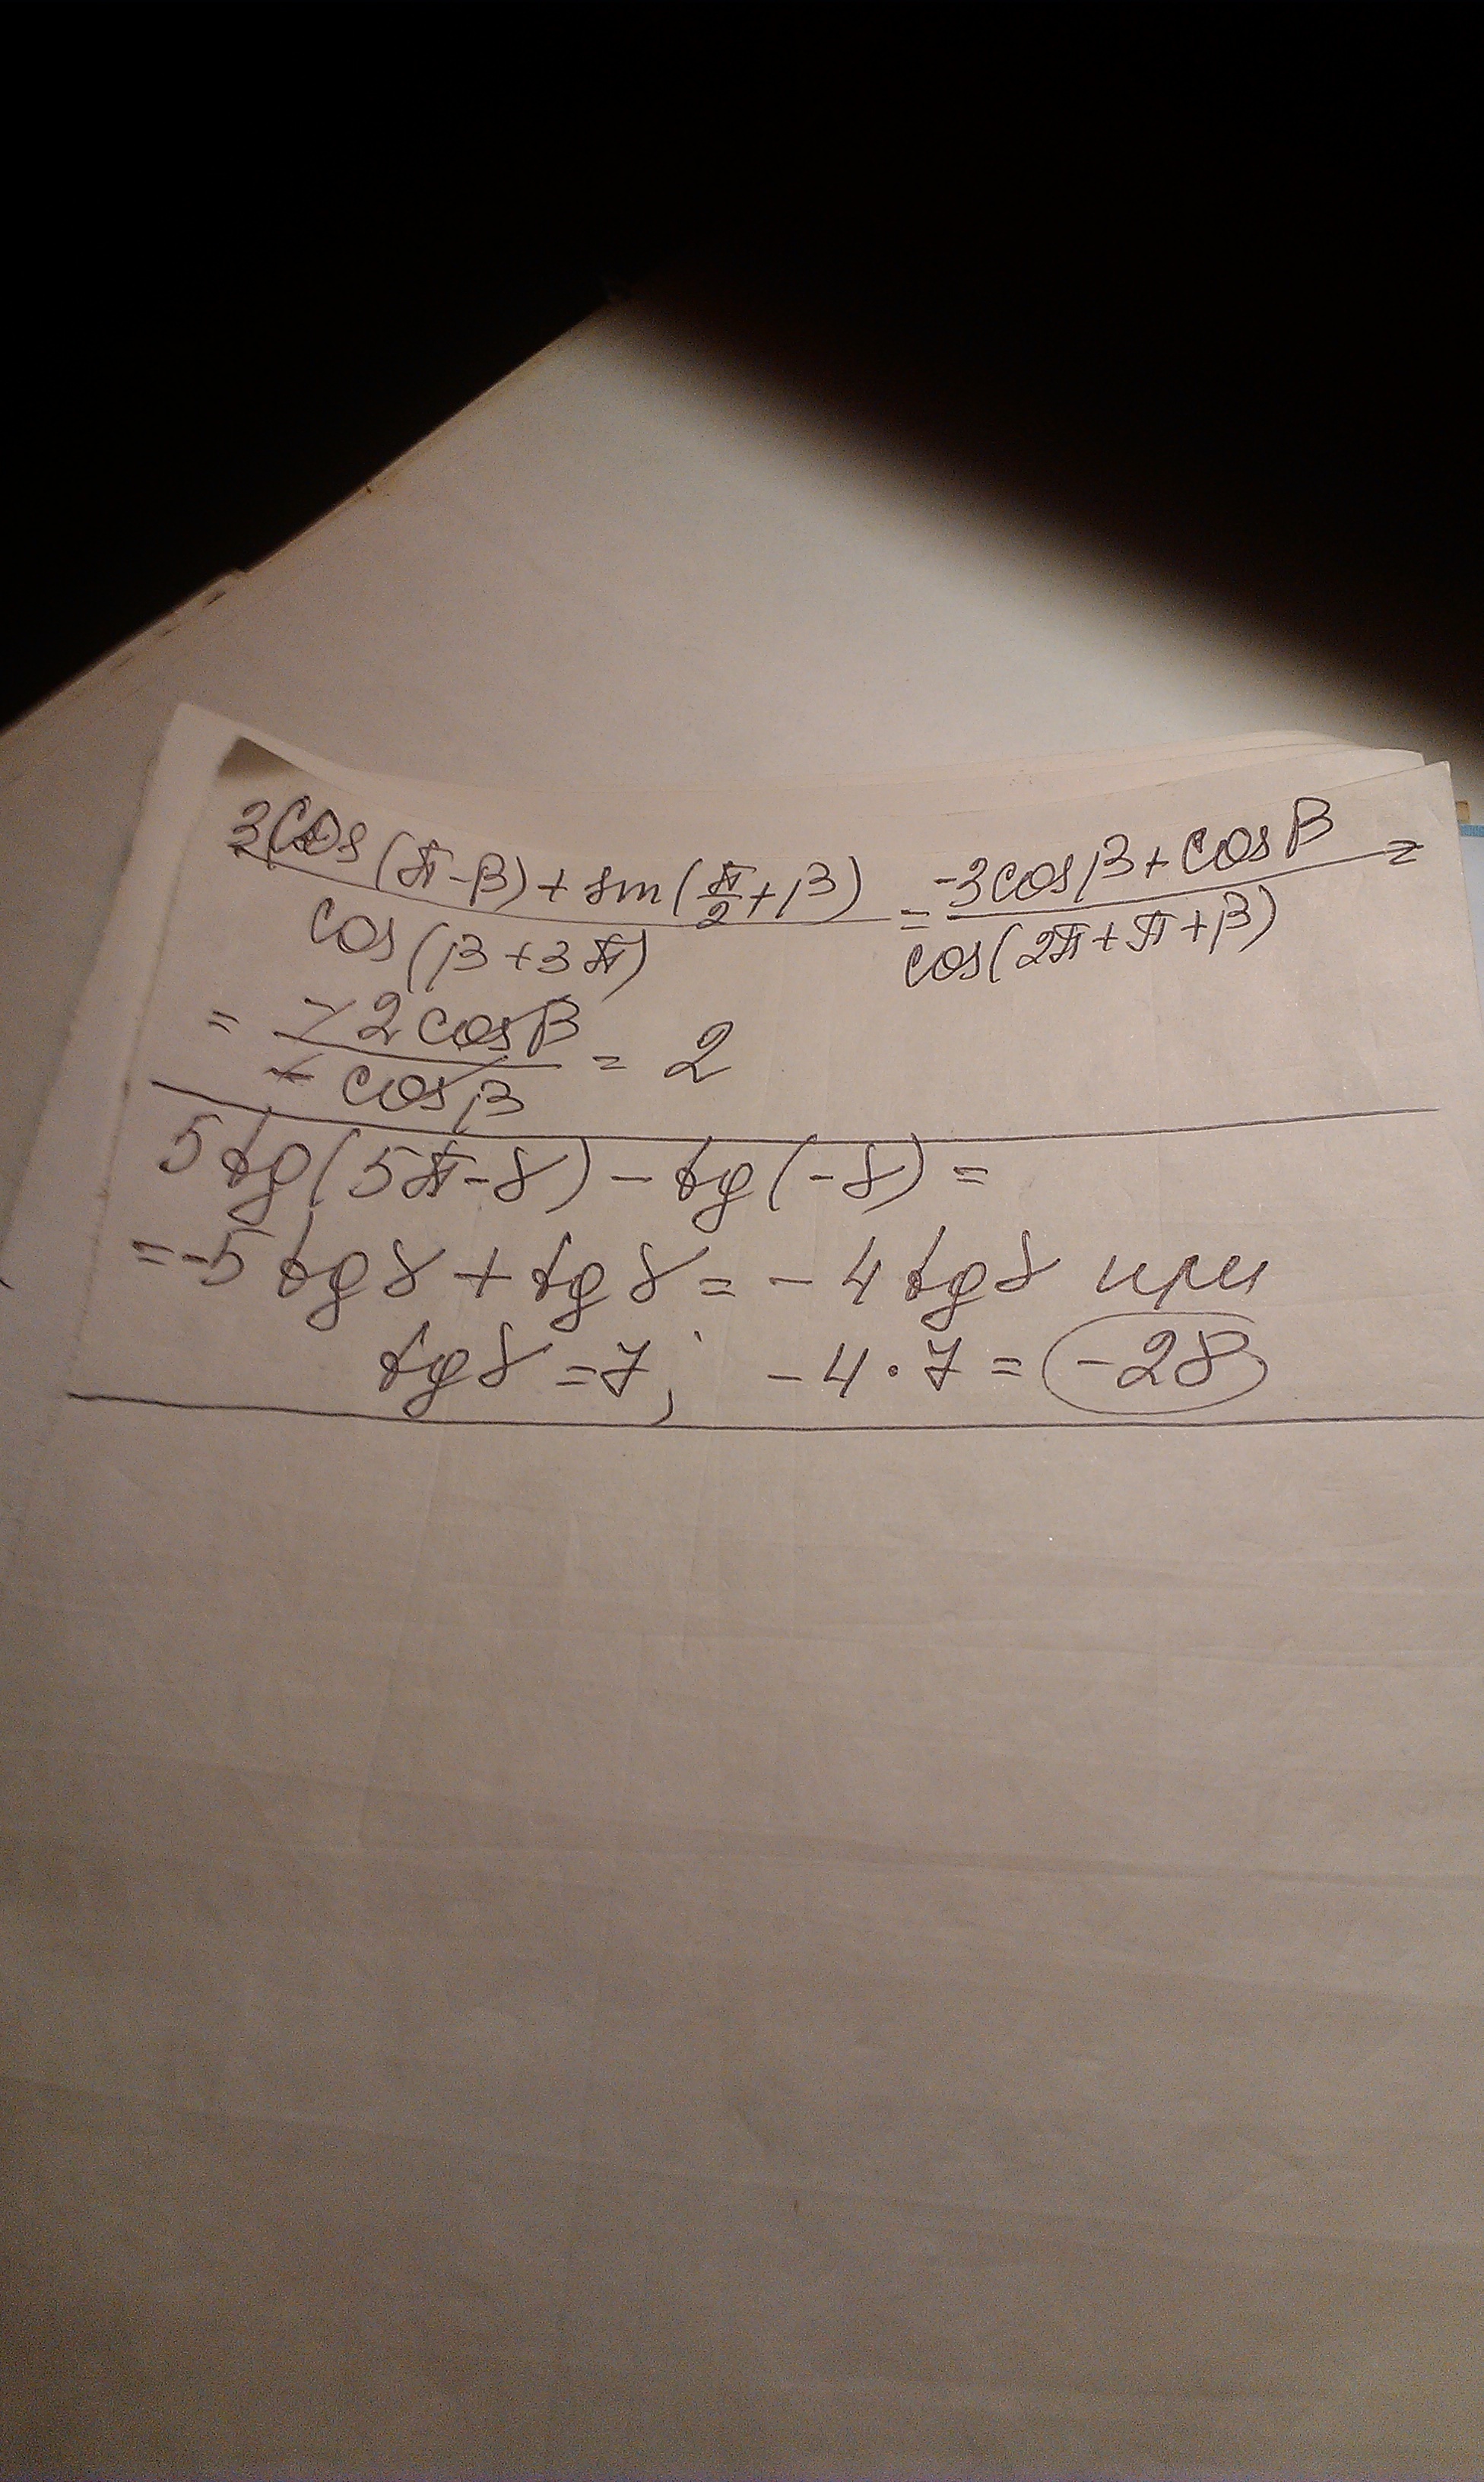 3cos(π-β)+sin(π/2+β) / cos(β+3π) = -3cosβ+cosβ / cos(2π+π+β) =
= -2cosβ / -cosβ = 2
5tg(5π-γ)-tg(-γ)=
=-5tgγ+tgγ=-4tgγ при
tgγ=7; -4·7=-28